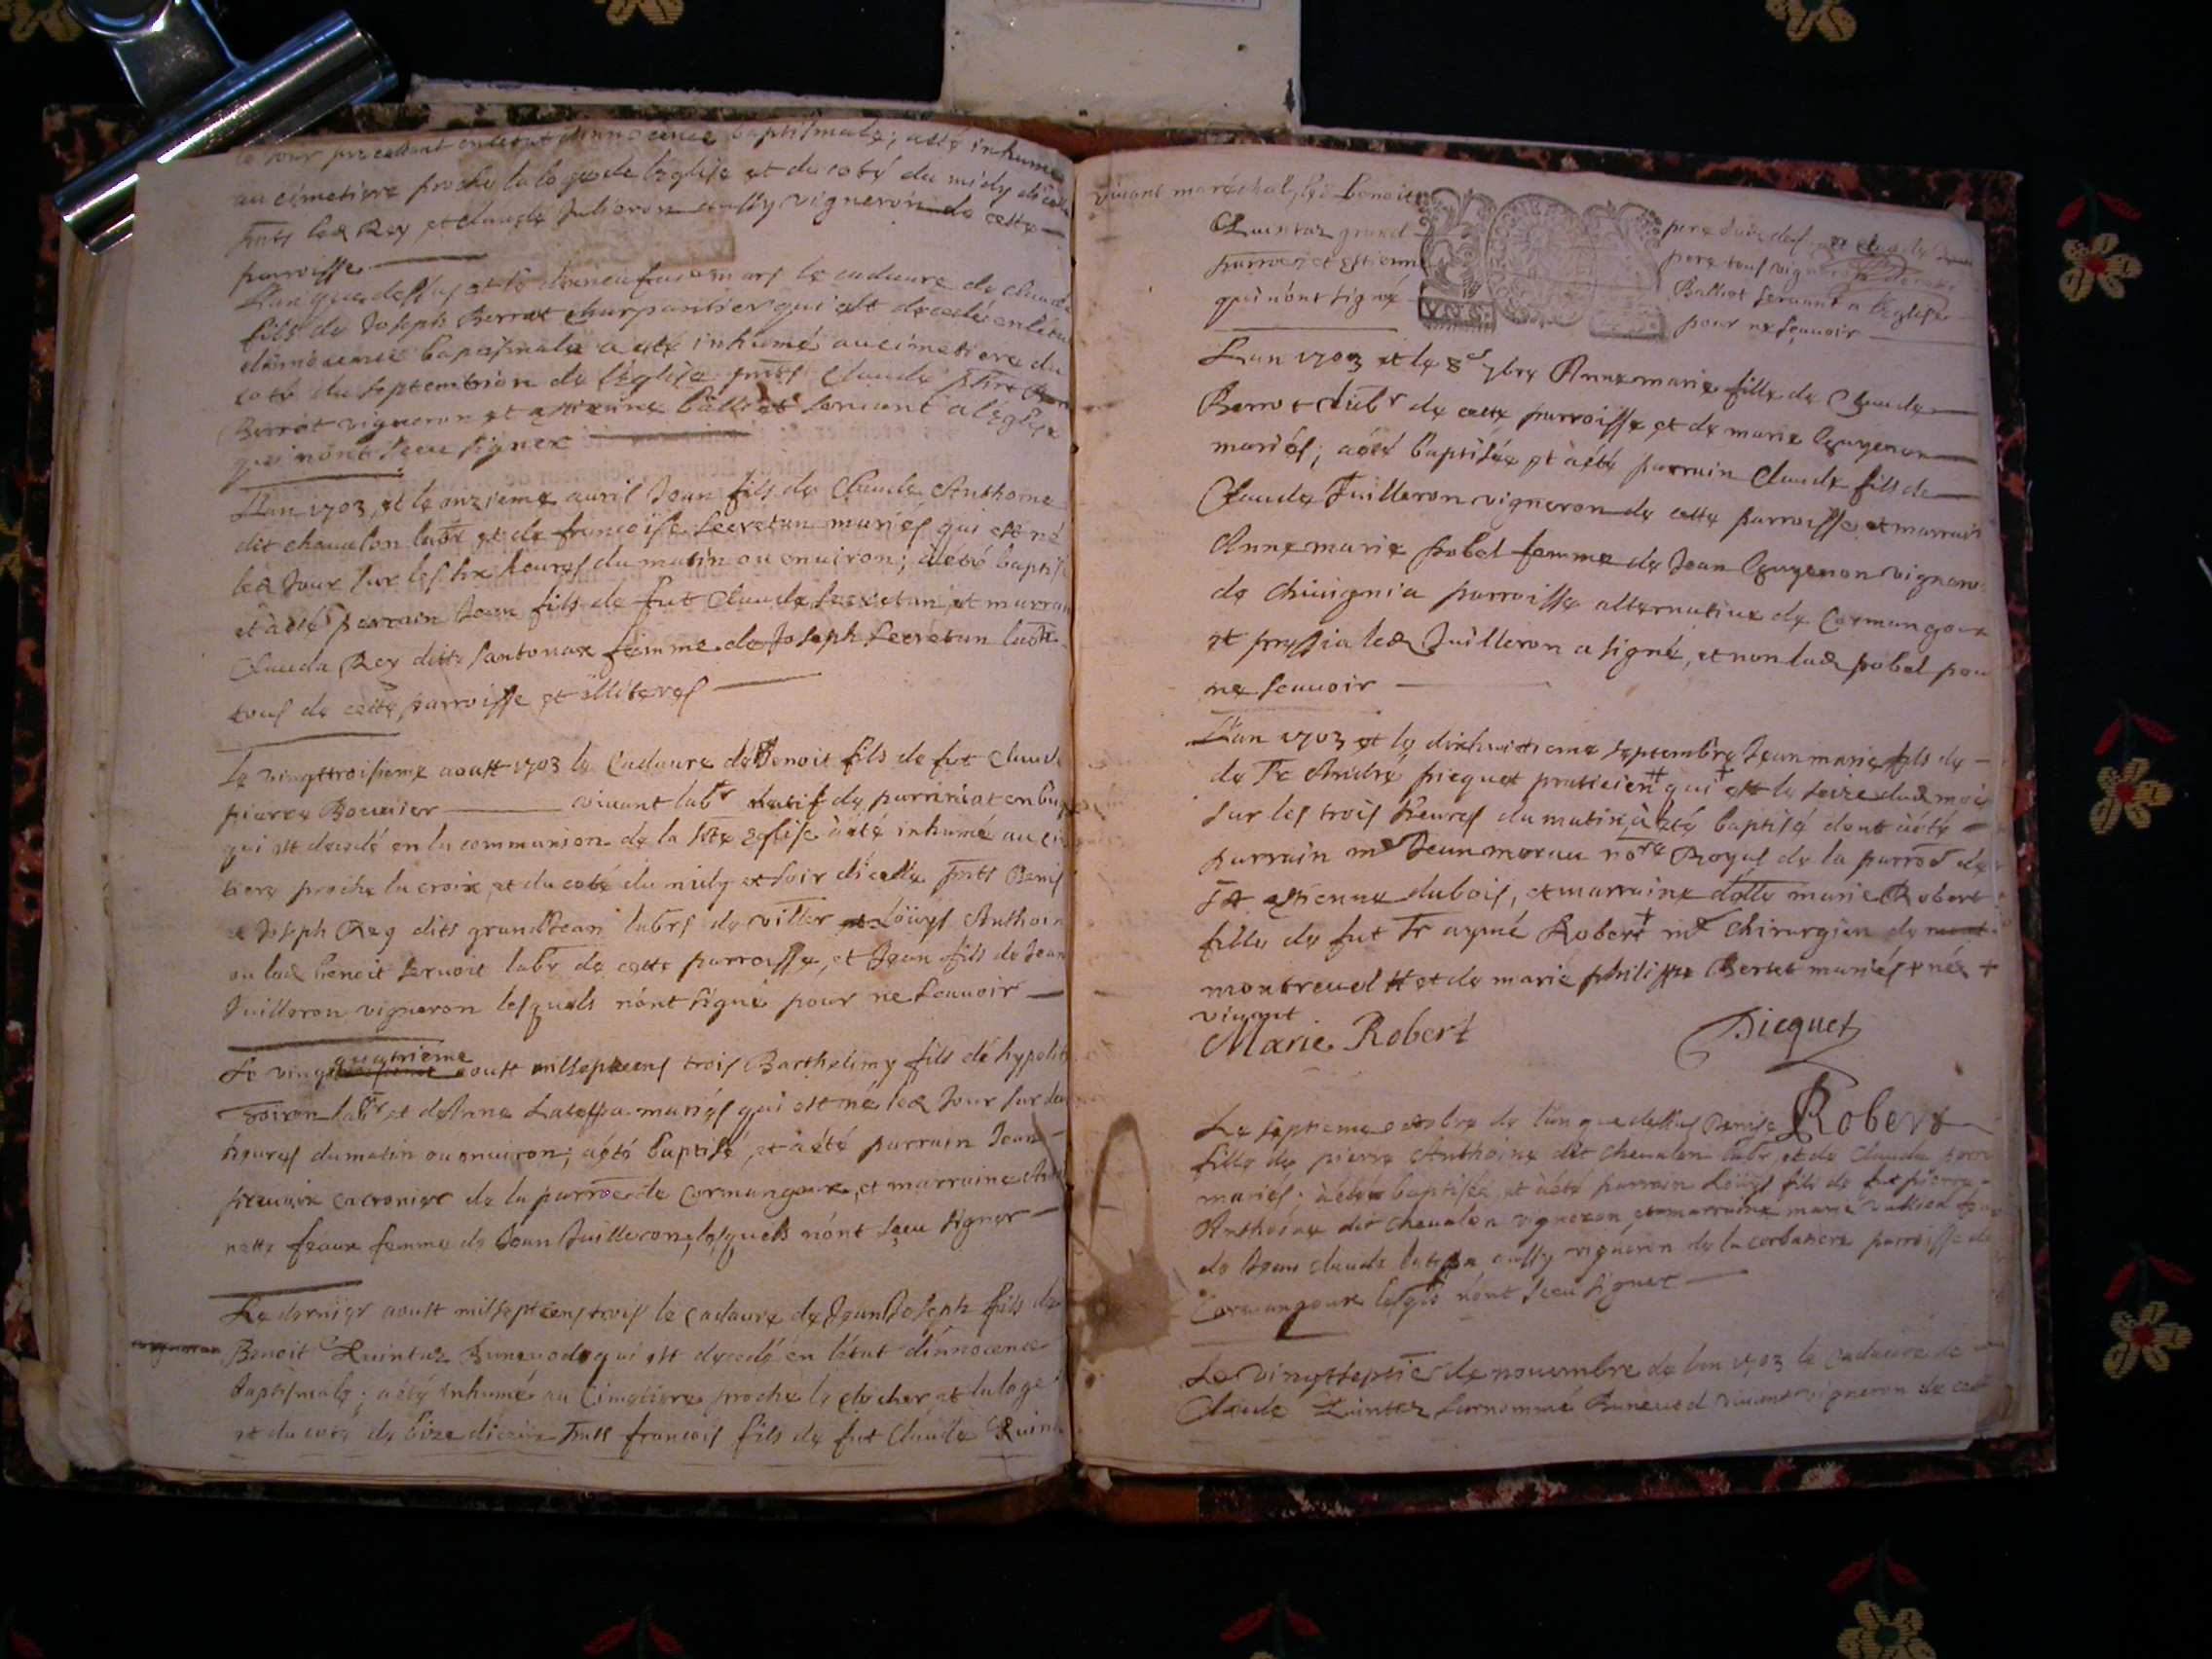 le jour precedant en letat dinnocence baptismale; a esté inhumé
au cimetiere proche la loge de leglise et du coté du midy dicelle
pnts led Rey et Claude Juliron aussy vigneron de cette
parroisse
Lan que dessus et le mars le cadavre de Claude
fils de Joseph Berrot charpantier qui est decedé en létat
dinnocence baptismale a eté inhumé au cimetiere du
coté du septentrion de léglise pnts Claude
Berrot vigneron et estienne Balliot servant a léglise
qui nónt sceu signer
Lan 1703, et le onzieme avril Jean fils de Claude Anthoine
dit chevalon labr et de francoise Secretan mariés qui est né
led Jour sur les six heures du matin ou environ; a eté baptisé
et a eté parrain Jean fils de fut Claude Secretan, et marraine
Clauda Rey ditte santonax femme de Joseph Secretan labr
tous de cette parroisse et illiterés
Le vingttroisieme aoust 1703 le Cadavre de Benoit fils de fut Claude
pierre Bouvier vivant labr natif de
qui est decedé en la communion de la ste Eglise à eté inhumé au cime
tiere proche la croix, et du coté du midy et soir dicelle pnts Denis
et Joseph Rey dits grandJean labrs de villar Loüys Anthoine
ou led benoit servoit labr de cette parroisse, et Jean fils de Jean
Juilleron vigneron lesquels nónt signé pour ne scavoir
quatrieme
Le vingt aoust milsepcens trois Barthelimy fils de hypolite
Poiron labr et de Anne Latessa mariés qui est né led Jour sur
heures du matin ou environ; a eté baptisé, et a été parrain Jean
de la parroe de Cormangoux, et marraine
nette féaux femme de Jean Juilleron, lesquels nónt sceu signer
Le dernier aoust milseptcens trois le Cadavre de Jean Joseph fils de
vigneron Benoit Quintaz Bunevod qui est decedé en létat dinnocence
baptismale; a eté inhumé au Cimetiere proche le clocher et la loge
et du coté de bize dicelle pnts francois fils de fut Claude Quintaz
vivant maréchal, led benoit
Quintaz grand
parroe et estienne
qui nónt signé
pere tous vigneron
Balliot servant a léglise
pour ne scavoir
Lan 1703 et le 8e 7bre Anne marie fille de Claude
Berrot labr de cette parroisse, et de marie Guyenon
mariés; a eté baptisée et à eté parrain Claude fils de
Claude Juilleron vigneron de cette parroisse, et marraine
Anne marie pobel femme de Jean Guyenon vigneron
de Chivignia parroisse alternative de Cormangoux
et pressia led Juilleron a signé, et non lad pobel pour
ne scavoir
Lan 1703 et le dixhuitieme septembre Jean marie fils de
de Sr André picquet praticien qui est le seize dud mois
sur les trois heures du matin, à eté baptisé dont à eté
parrain mr Jean morau nore Royal de la parroe de
St estienne dubois, et marraine dlle marie Robert
fille de fut Sr aymé Robert mr Chirurgien de
montrevel et de marie philippe Bertet mariés + né +
vivant
Marie Robert Picquet
Robert
Le septieme octobre de lan que dessus Denise
fille de pierre Anthoine dit Chevalon labr, et de Clauda
mariés; à eté baptisée, et à eté parrain Loüys fils de fut pierre
Anthoine dit chevalon vigneron, et marraine marie
de Jean Claude aussy vigneron de la corbatiere parroisse de
Cormangoux lesqls nónt sceu signer
Le vingtseptie de novembre de lan 1703 le Cadavre de
Claude Quintaz surnommé Buneuod vivant vigneron de cette